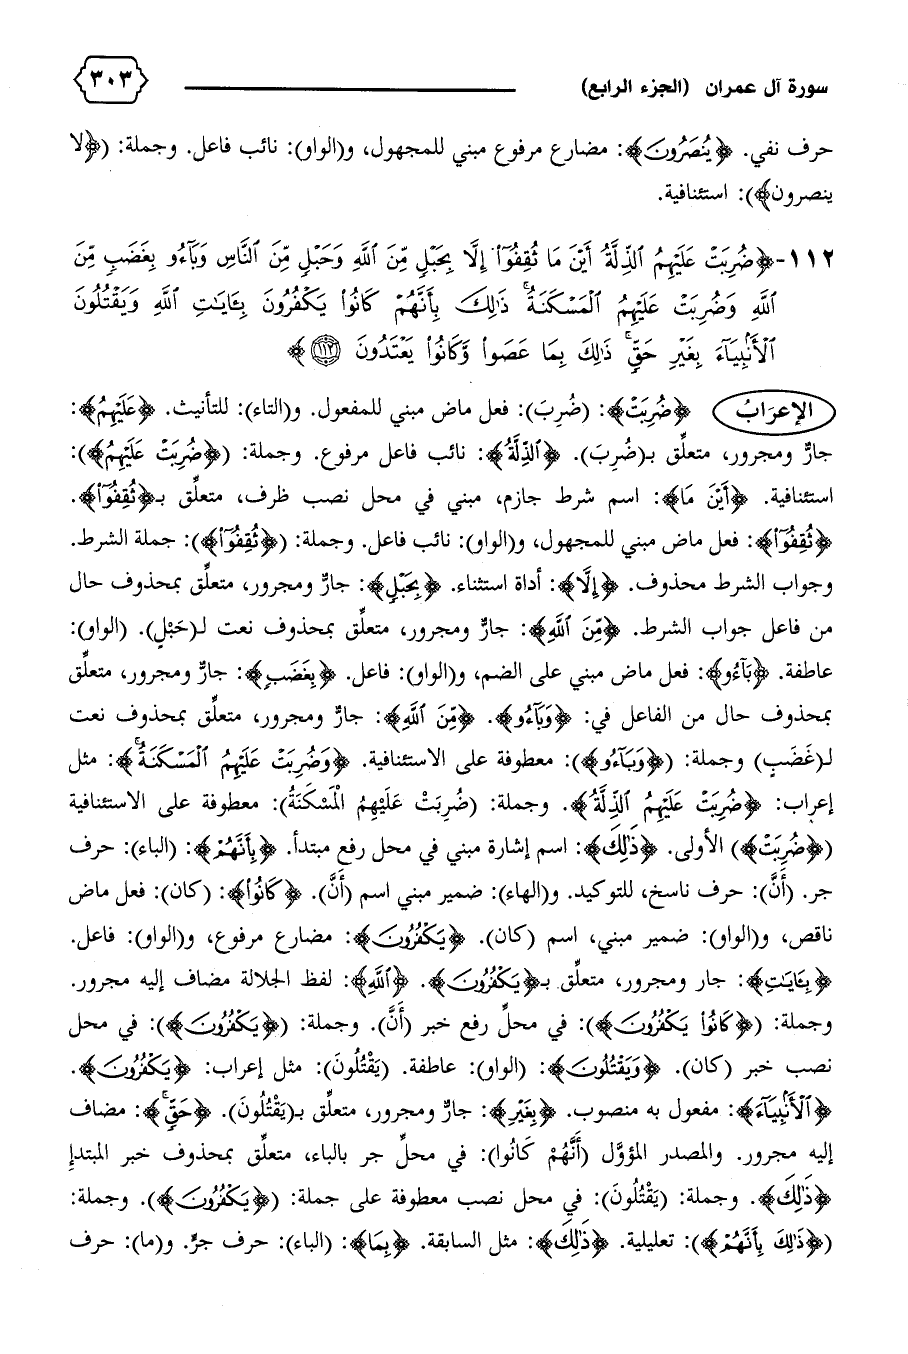 سورة آل عمران (الجزء الرابع) ٣٠٣
حرف نفي. ﴿يُنصَرُونَ﴾: مضارع مرفوع مبني للمجهول، و(الواو): نائب فاعل. وجملة: (﴿لا
ينصرون﴾): استئنافية.
١١٢-﴿ضُرِبَتْ عَلَيْهِمُ ٱلذِّلَّةُ أَيْنَ مَا ثُقِفُوٓا۟ إِلَّا بِحَبْلٍ مِّنَ ٱللَّهِ وَحَبْلٍ مِّنَ ٱلنَّاسِ وَبَآءُو بِغَضَبٍ مِّنَ
ٱللَّهِ وَضُرِبَتْ عَلَيْهِمُ ٱلْمَسْكَنَةُ ۚ ذَٰلِكَ بِأَنَّهُمْ كَانُوا۟ يَكْفُرُونَ بِـَٔايَٰتِ ٱللَّهِ وَيَقْتُلُونَ
ٱلْأَنۢبِيَآءَ بِغَيْرِ حَقٍّ ۚ ذَٰلِكَ بِمَا عَصَوا۟ وَّكَانُوا۟ يَعْتَدُونَ ﴿١١٢﴾ ﴾
الإعرَابُ ﴿ضُرِبَتْ﴾: (ضُرِبَ): فعل ماض مبني للمفعول. و(التاء): للتأنيث. ﴿عَلَيْهِمُ﴾:
جارٌّ ومجرور، متعلِّق بـ(ضُرِبَ). ﴿ٱلذِّلَّةُ﴾: نائب فاعل مرفوع. وجملة: (﴿ضُرِبَتْ عَلَيْهِمُ﴾):
استئنافية. ﴿أَيْنَ مَا﴾: اسم شرط جازم، مبني في محل نصب ظرف، متعلِّق بـ﴿ثُقِفُوٓا۟﴾.
﴿ثُقِفُوٓا۟﴾: فعل ماض مبني للمجهول، و(الواو): نائب فاعل. وجملة: (﴿ثُقِفُوٓا۟﴾): جملة الشرط.
وجواب الشرط محذوف. ﴿إِلَّا﴾: أداة استثناء. ﴿بِحَبْلٍ﴾: جارٌّ ومجرور، متعلِّق بمحذوف حال
من فاعل جواب الشرط. ﴿مِّنَ ٱللَّهِ﴾: جارٌّ ومجرور، متعلِّق بمحذوف نعت لـ(حَبْلٍ). (الواو):
عاطفة. ﴿بَآءُو﴾: فعل ماض مبني على الضم، و(الواو): فاعل. ﴿بِغَضَبٍ﴾: جارٌّ ومجرور، متعلِّق
بمحذوف حال من الفاعل في: ﴿وَبَآءُو﴾. ﴿مِّنَ ٱللَّهِ﴾: جارٌّ ومجرور، متعلِّق بمحذوف نعت
لـ(غَضَبٍ) وجملة: (﴿وَبَآءُو﴾): معطوفة على الاستئنافية. ﴿وَضُرِبَتْ عَلَيْهِمُ ٱلْمَسْكَنَةُ ۚ﴾: مثل
إعراب: ﴿ضُرِبَتْ عَلَيْهِمُ ٱلذِّلَّةُ﴾. وجملة: (ضُرِبَتْ عَلَيْهِمُ الْمَسْكَنَةُ): معطوفة على الاستئنافية
(﴿ضُرِبَتْ﴾) الأولى. ﴿ذَٰلِكَ﴾: اسم إشارة مبني في محل رفع مبتدأ. ﴿بِأَنَّهُمْ﴾: (الباء): حرف
جر. (أَنَّ): حرف ناسخ، للتوكيد. و(الهاء): ضمير مبني اسم (أَنَّ). ﴿كَانُوا۟﴾: (كان): فعل ماض
ناقص، و(الواو): ضمير مبني، اسم (كان). ﴿يَكْفُرُونَ﴾: مضارع مرفوع، و(الواو): فاعل.
﴿بِـَٔايَٰتِ﴾: جار ومجرور، متعلِّق بـ﴿يَكْفُرُونَ﴾. ﴿ٱللَّهِ﴾: لفظ الجلالة مضاف إليه مجرور.
وجملة: (﴿كَانُوا۟ يَكْفُرُونَ﴾): في محلِّ رفع خبر (أَنَّ). وجملة: (﴿يَكْفُرُونَ﴾): في محل
نصب خبر (كان). ﴿وَيَقْتُلُونَ﴾: (الواو): عاطفة. (يَقْتُلُونَ): مثل إعراب: ﴿يَكْفُرُونَ﴾.
﴿ٱلْأَنۢبِيَآءَ﴾: مفعول به منصوب. ﴿بِغَيْرِ﴾: جارٌّ ومجرور، متعلِّق بـ(يَقْتُلُونَ). ﴿حَقٍّ ۚ﴾: مضاف
إليه مجرور. والمصدر المؤوَّل (أَنَّهُمْ كَانُوا): في محلِّ جر بالباء، متعلِّق بمحذوف خبر المبتدإ
﴿ذَٰلِكَ﴾. وجملة: (يَقْتُلُونَ): في محل نصب معطوفة على جملة: (﴿يَكْفُرُونَ﴾). وجملة:
(﴿ذَٰلِكَ بِأَنَّهُمْ﴾): تعليلية. ﴿ذَٰلِكَ﴾: مثل السابقة. ﴿بِمَا﴾: (الباء): حرف جرٍّ. و(ما): حرف